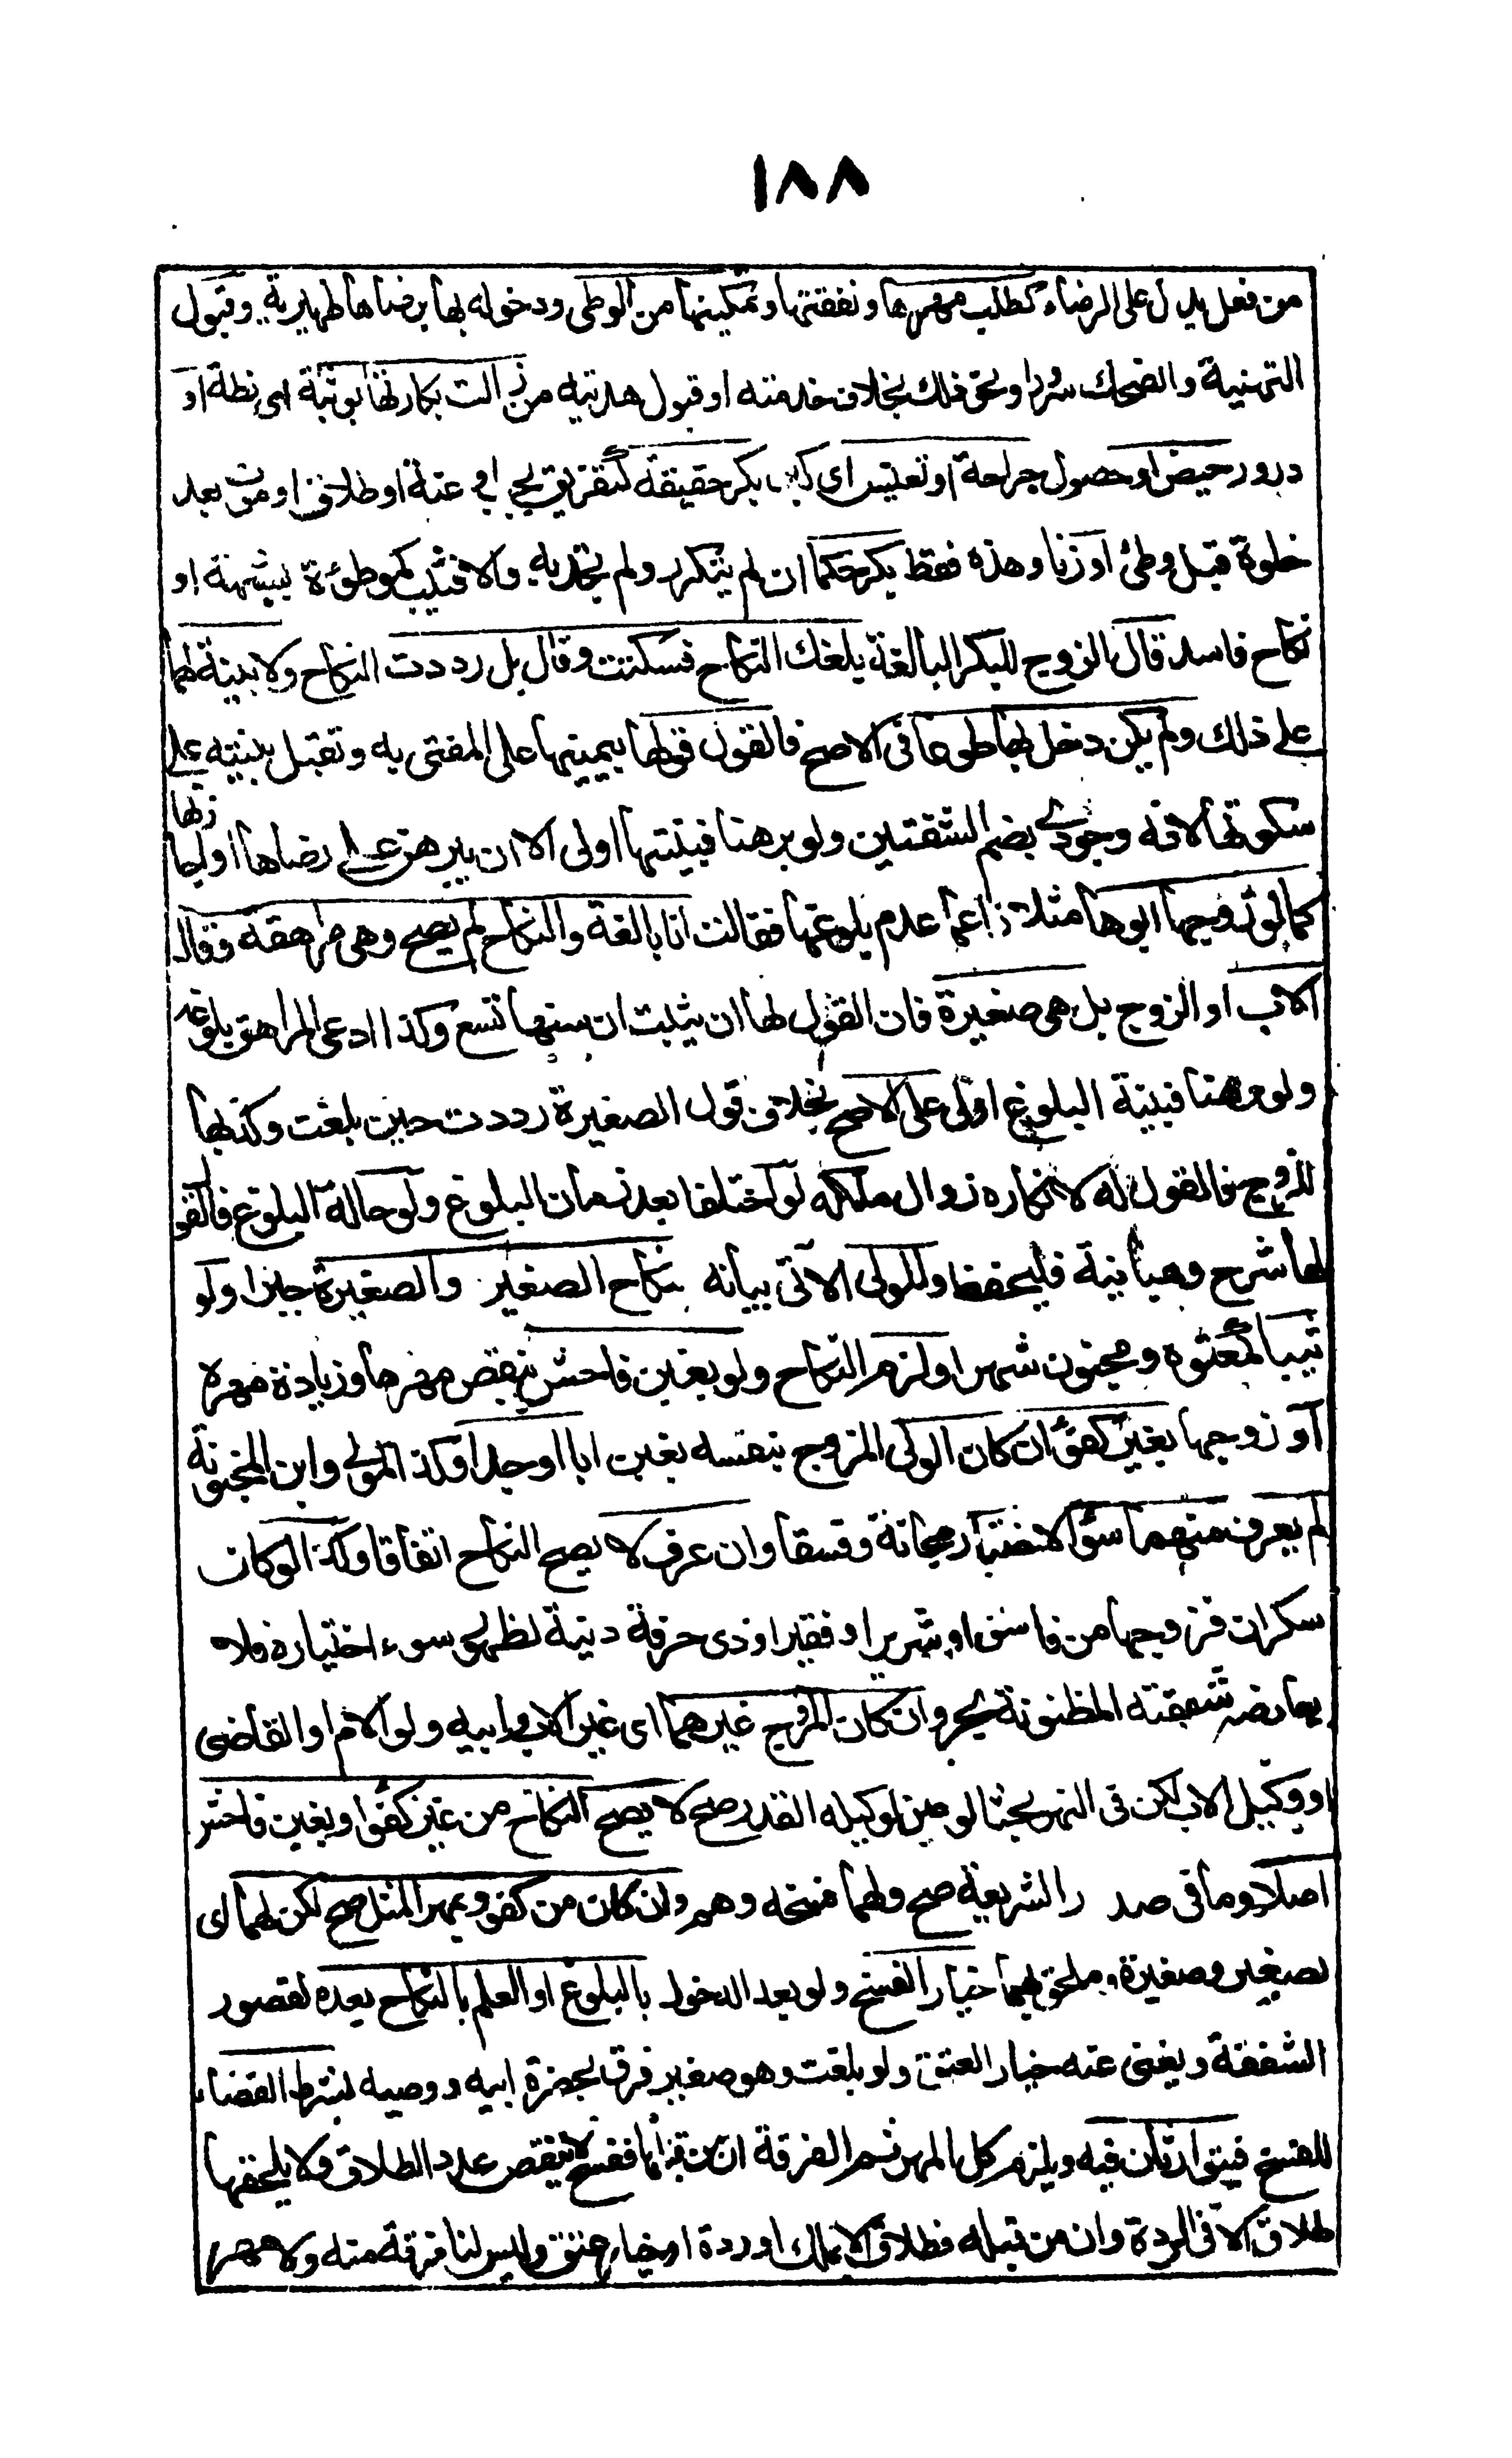 ١٨٨
من فعل يدل على الرضاء كطلب مهرها ونفقتها وتمكينها من الوطى ودخوله بها برضاها ظهيرية وقبول
التهنية والضحك سرورا ونحو ذلك بخلاف خدمته او قبول هديته من زالت بكارتها بوثبة اى نطة او
درور حيض او حصول جراحة او تعنيس اى كبر بكر حقيقة كتفريق بجب او عنة او طلاق او موت بعد
خلوة قبل وطئ او زنا وهذه فقط بكر حكما ان لم يتكرر ولم تحد به والا فثيب كموطؤة بشبهة او
نكاح فاسد قال الزوج للبكر البالغة بلغك النكاح فسكتت وقال بل رددت النكاح ولا بينة لهما
على ذلك ولم يكن دخل بها طوعا فى الاصح فالقول قولها بيمينها على المفتى به وتقبل بينته على
سكوتها لانه وجودى بضم الشفتين ولو برهنا فبينتها اولى الا ان يبرهن على رضاها او اجا
زتها
كما لو زوجها ابوها مثلا زاعما عدم بلوغها فقالت انا بالغة والنكاح لم يصح وهى مراهقة وقال
الاب او الزوج بل هى صغيرة فان القول لها ان يثبت ان سنها تسع وكذا ادعى المراهق بلوغه
ولو برهنا فبينة البلوغ اولى على الاصح بخلاف قول الصغيرة رددت حين بلغت وكذبها
الزوج فالقول له لانكاره زوال ملكه لو اختلفا بعد زمان البلوغ ولو حالة البلوغ فالقو
لها شرح وهبانية فليحفظ وللولى الآتى بيانه نكاح الصغير والصغيرة جبرا ولو
ثيبا كمعتوه ومجنون شهرا ولزم النكاح ولو بغبن فاحش بنقص مهرها وزيادة مهره
او زوجها بغير كفؤ ان كان الولى المزوج بنفسه بغبن ابا او جدا وكذا المولى وابن المجنونة
لم يعرف منهما سؤ الاختيار مجانة وفسقا وان عرف لا يصح النكاح اتفاقا وكذا لو كان
سكران فزوجها من فاسق او شرير او فقير او ذى حرفة دنية لظهور سوء اختياره فلا
يعارضه شفقته المظنونة بحر وان كان المزوج غيرهما اى غير الاب وابيه ولو الام او القاضى
او وكيل الاب لكن فى النهر بحثا لو عين لوكيله القدر صح لا يصح النكاح من غير كفؤ او بغبن فاحش
اصلا وما فى صدر الشريعة صح ولهما فسخه وهم وان كان من كفو وبمهر المثل صح لكن لهما اى
لصغير وصغيرة وملحق بهما خيار الفسخ ولو بعد الدخول بالبلوغ او العلم بالنكاح بعده لقصور
الشفقة ويغنى عنه خيار العتق ولو بلغت وهو صغير فرق بحضرة ابيه او وصيه بشرط القضاء
للفسخ فيتوارثان فيه ويلزم كل المهر ثم الفرقة ان من قبلها ففسخ لا ينقص عدد الطلاق ولا يلحقها
طلاق الا فى الردة وان من قبله فطلاق الا بملك او ردة او خيار عتق وليس لنا فرقة منه ولا مهر